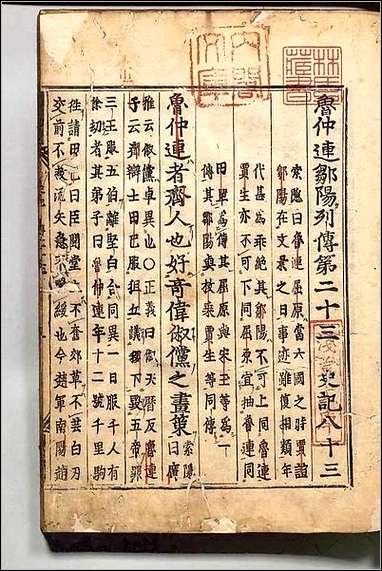 魯仲連鄒陽列傳第二十三 史記八十三
索隱曰魯連屈原當六國之時賈誼
鄒陽在文景之日事迹雖復相類年
代甚為乖絕其鄒陽不可上同魯連
賈生亦不可下同屈原宜抽魯連同
田單為傳其屈原與宋玉等為一
傳其鄒陽與枚乘賈生等同傳
魯仲連者齊人也好奇偉俶儻之畫策 索隱曰廣
雅云俶儻卓異也○正義曰俶天曆反魯連
子云齊辯士田巴服狙丘議稷下毀五帝罪
三王服五伯離堅白合同異一日服千人有
徐劫者其弟子曰魯仲連年十二號千里駒
往請田巴曰臣聞堂上不奮郊草不芸白刃
交前不救流矢急不暇緩也今楚軍南陽趙